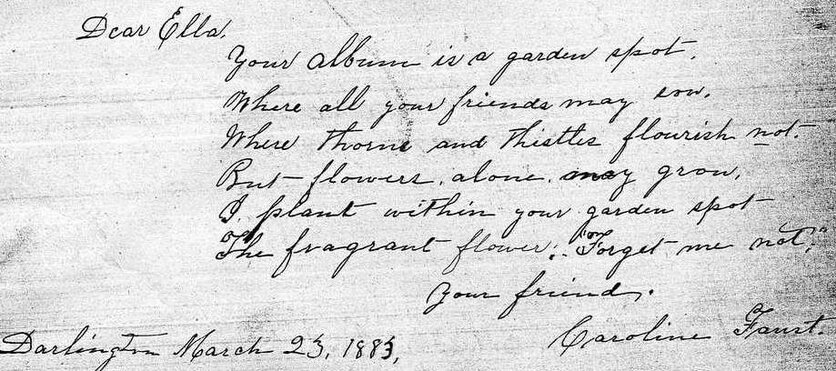 Dear Ella.
Your album is a garden spot.
Where all your friends may sow.
Where thorns and thistles flourish not.
But flowers. alone. may grow.
I. plant within your garden spot
The fragrant flower: "Forget me not,"
Your friend.
Caroline Faust.
Darlington March 23, 1883,